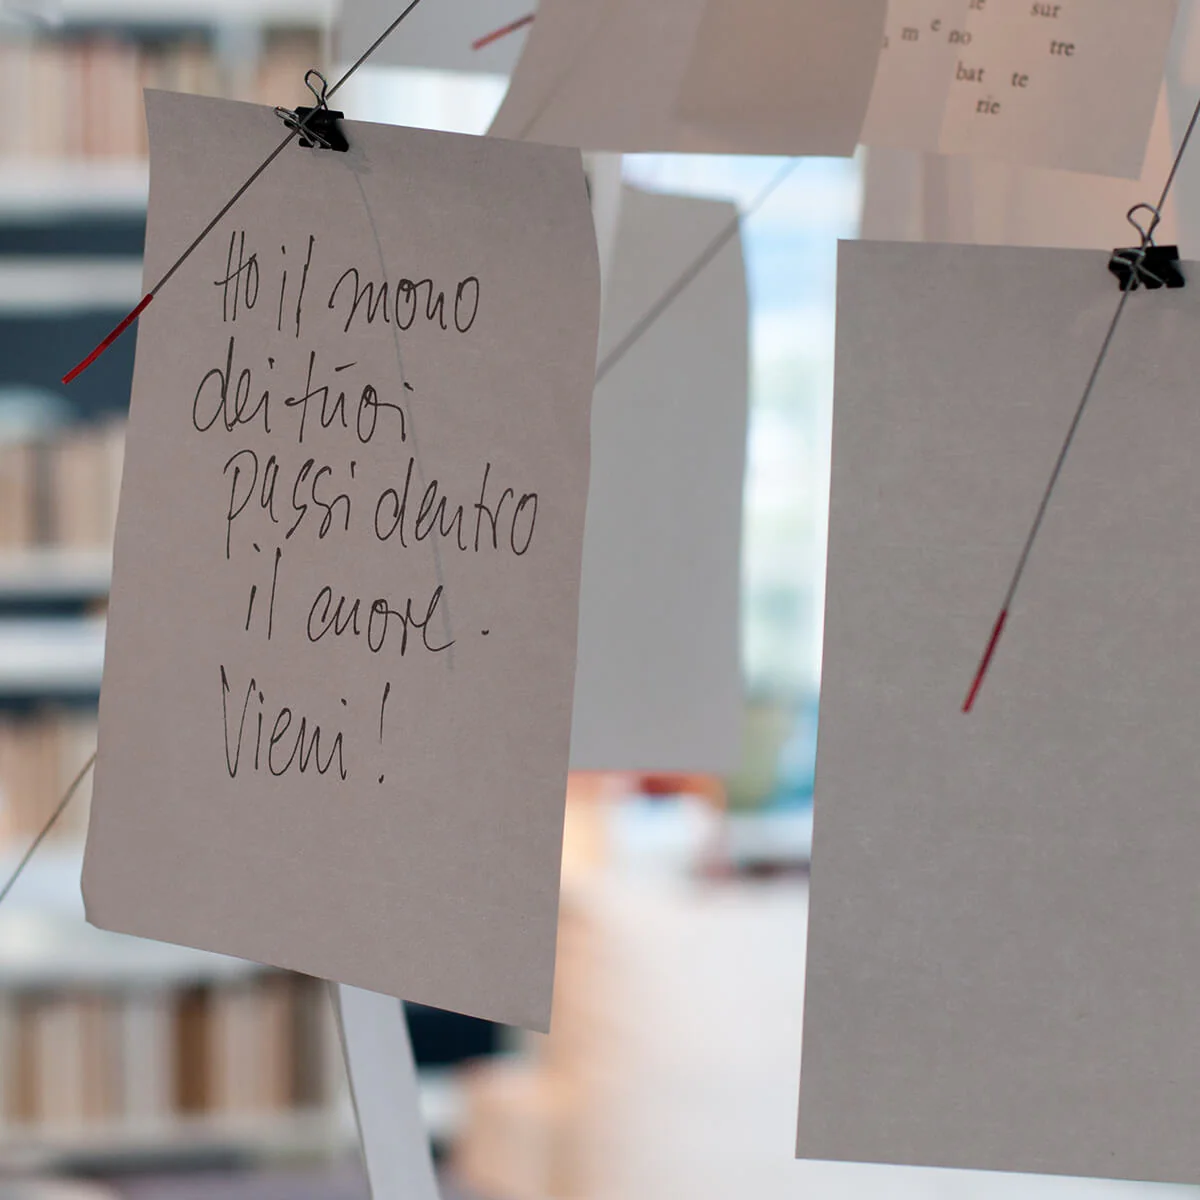 Ho il mono
dei tuoi
passi dentro
il cuore.
Vieni!
le sur
m e no tre
bat te
rie